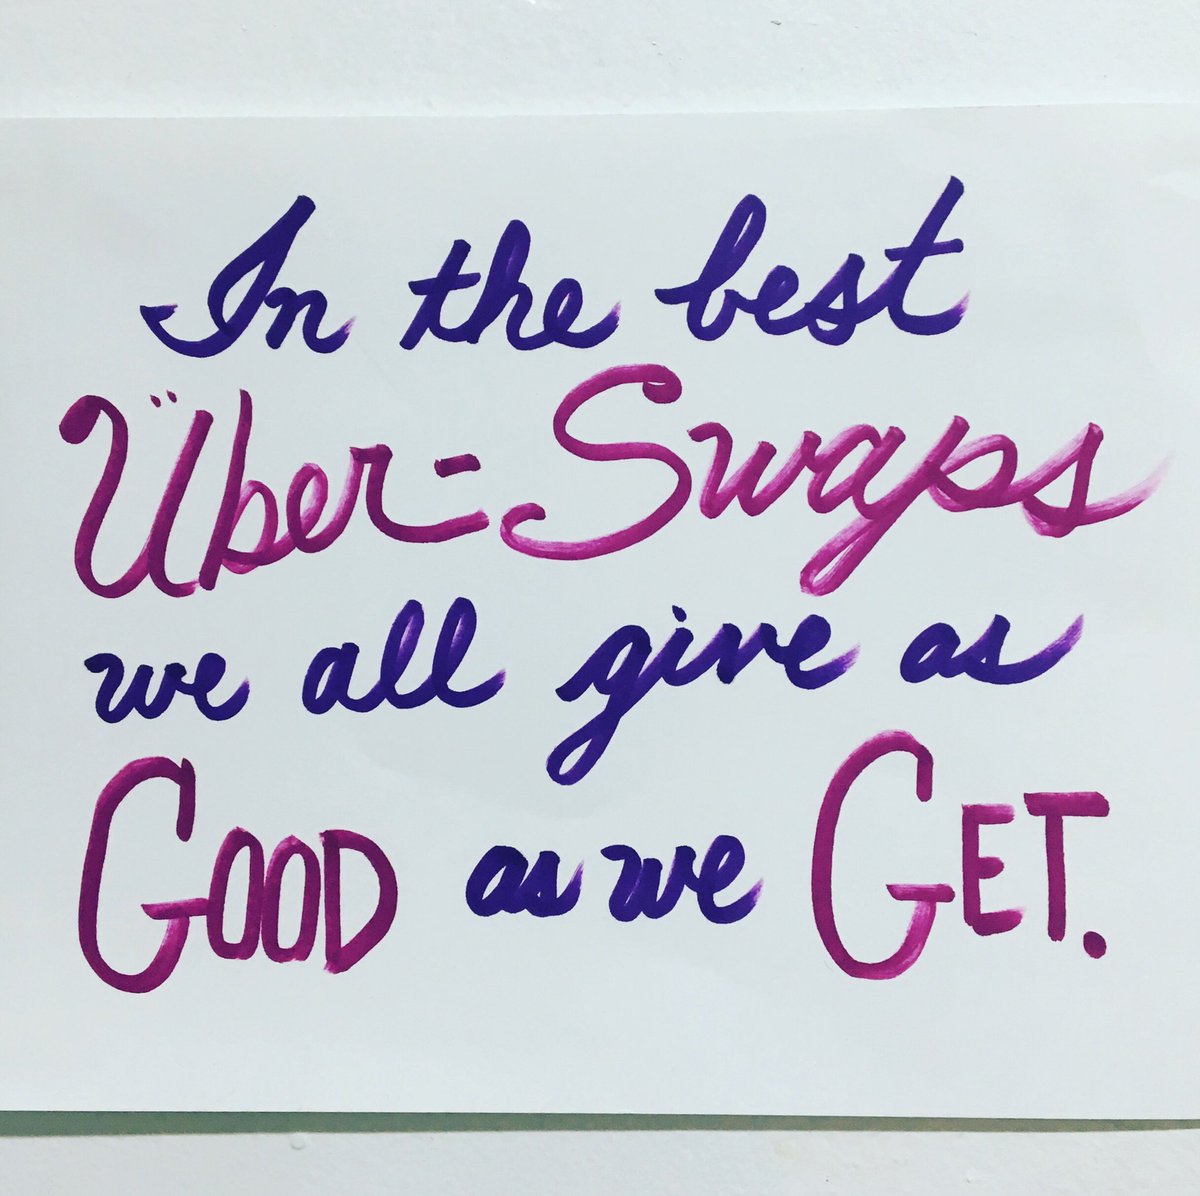 In the best
Über-Swaps
we all give as
GOOD as we GET.